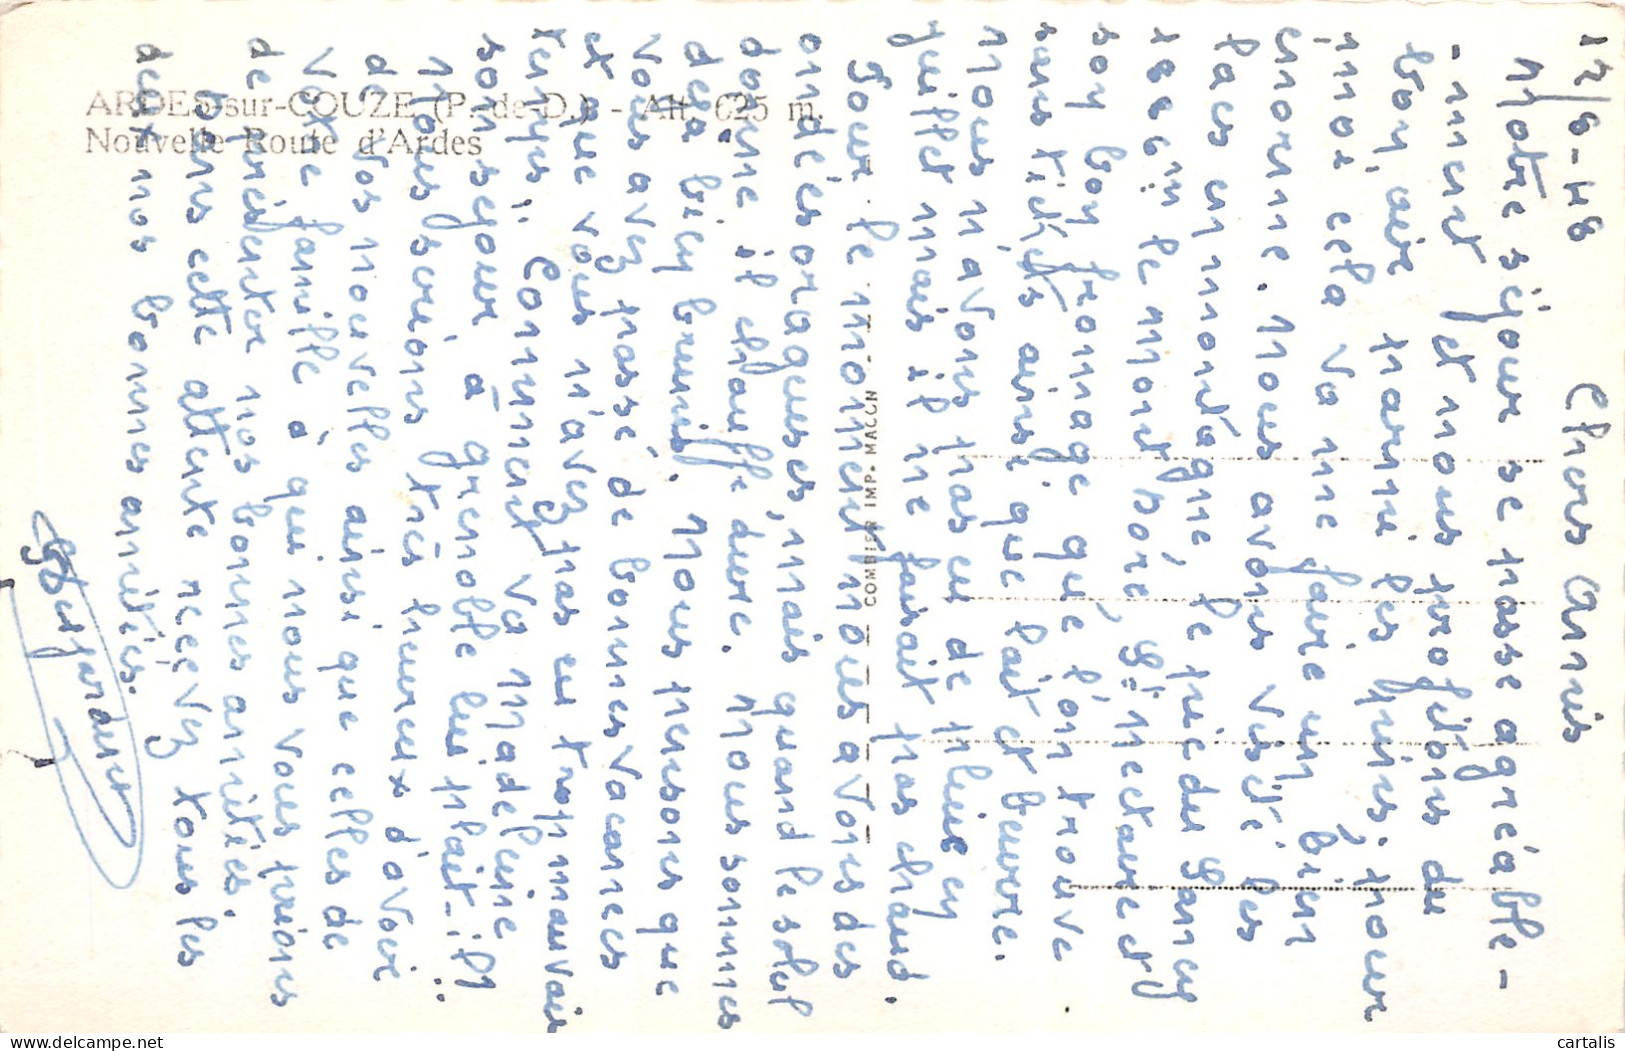 ARDES-sur-COUZE (P.-de-D.) - Alt. 625 m.
Nouvelle Route d'Ardes
COMBIER IMP. MACON
17/8-48
Chers amis
Notre séjour se passe agréable-
-ment et nous profitons du
bon air parmi les pins; pour
moi cela va me faire un bien
énorme. Nous avons visité les
lacs en montagne, le pic du Sancy
le mont Doré, St nectaire et
son bon fromage que l'on trouve
sans tickets ainsi que lait et beurre.
Nous n'avons pas eu de pluie en
juillet mais il ne faisait pas chaud.
Pour le moment nous avons des
ondées orageuses, mais quand le soleil
donne il chauffe dure. Nous sommes
déjà bien brunis. Nous pensons que
vous avez passé de bonnes vacances
et que vous n'avez pas eu trop mauvais
temps. Comment va Madeleine
son séjour à grenoble lui plait-il
Nous serions très heureux d'avoir
de vos nouvelles ainsi que celles de
votre famille à qui nous vous prions
de présenter nos bonnes amitiés.
Dans cette attente recevez tous les
deux nos bonnes amitiés.
cartalis